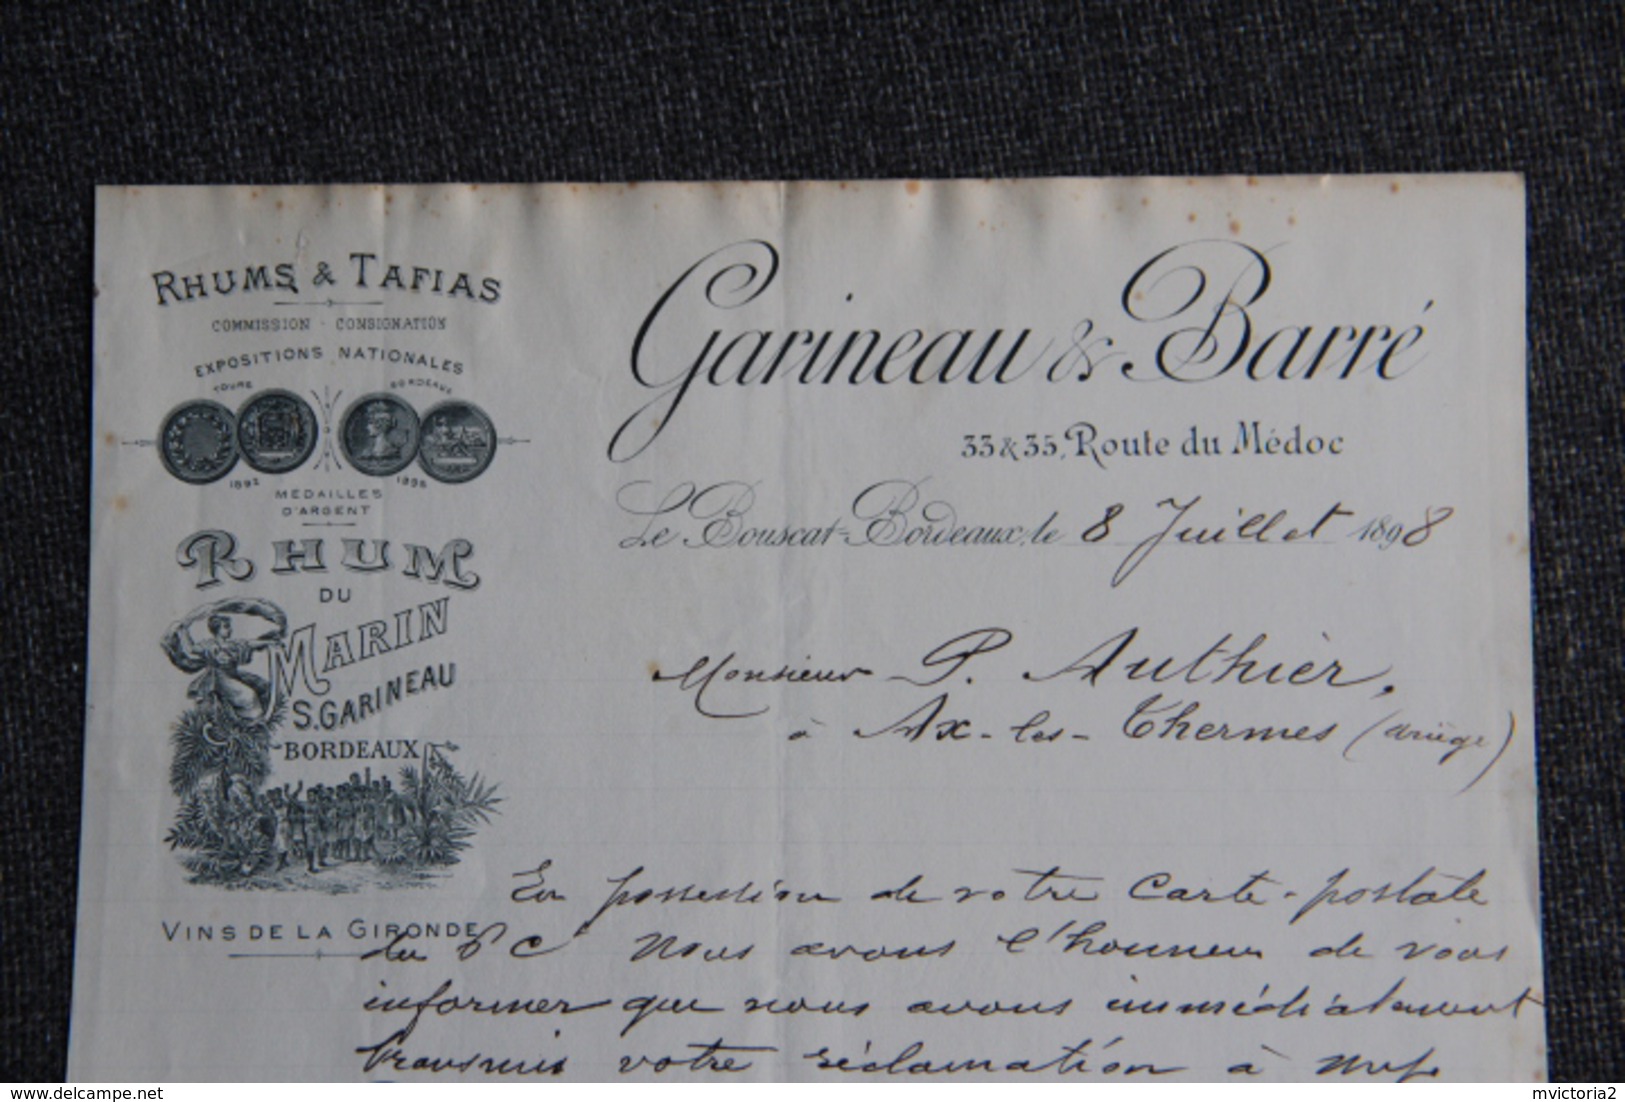 RHUMS & TAFIAS
COMMISSION - CONSIGNATION
EXPOSITIONS NATIONALES
TOURS BORDEAUX
1892 1895
MÉDAILLES
D'ARGENT
RHUM
DU
MARIN
S. GARINEAU
BORDEAUX
VINS DE LA GIRONDE
Garineau & Barré
33 & 35, Route du Médoc
Le Bouscat-Bordeaux, le 8 Juillet 1898
Monsieur P. Authier,
à Ax-les-Thermes (Ariège)
En possession de votre Carte-postale
du 6 Ct Nous avons l'honneur de vous
informer que nous avons immédiatement
transmis votre réclamation à
mvictoria2